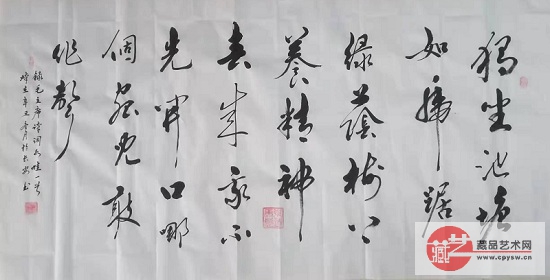 独坐池塘
如虎踞
绿蔭樹下
養精神
春来我不
先开口哪
個虫兒敢
作聲
錄毛主席诗词咏蛙一首
时在辛丑
藏品艺术网
www.cpysw.cn